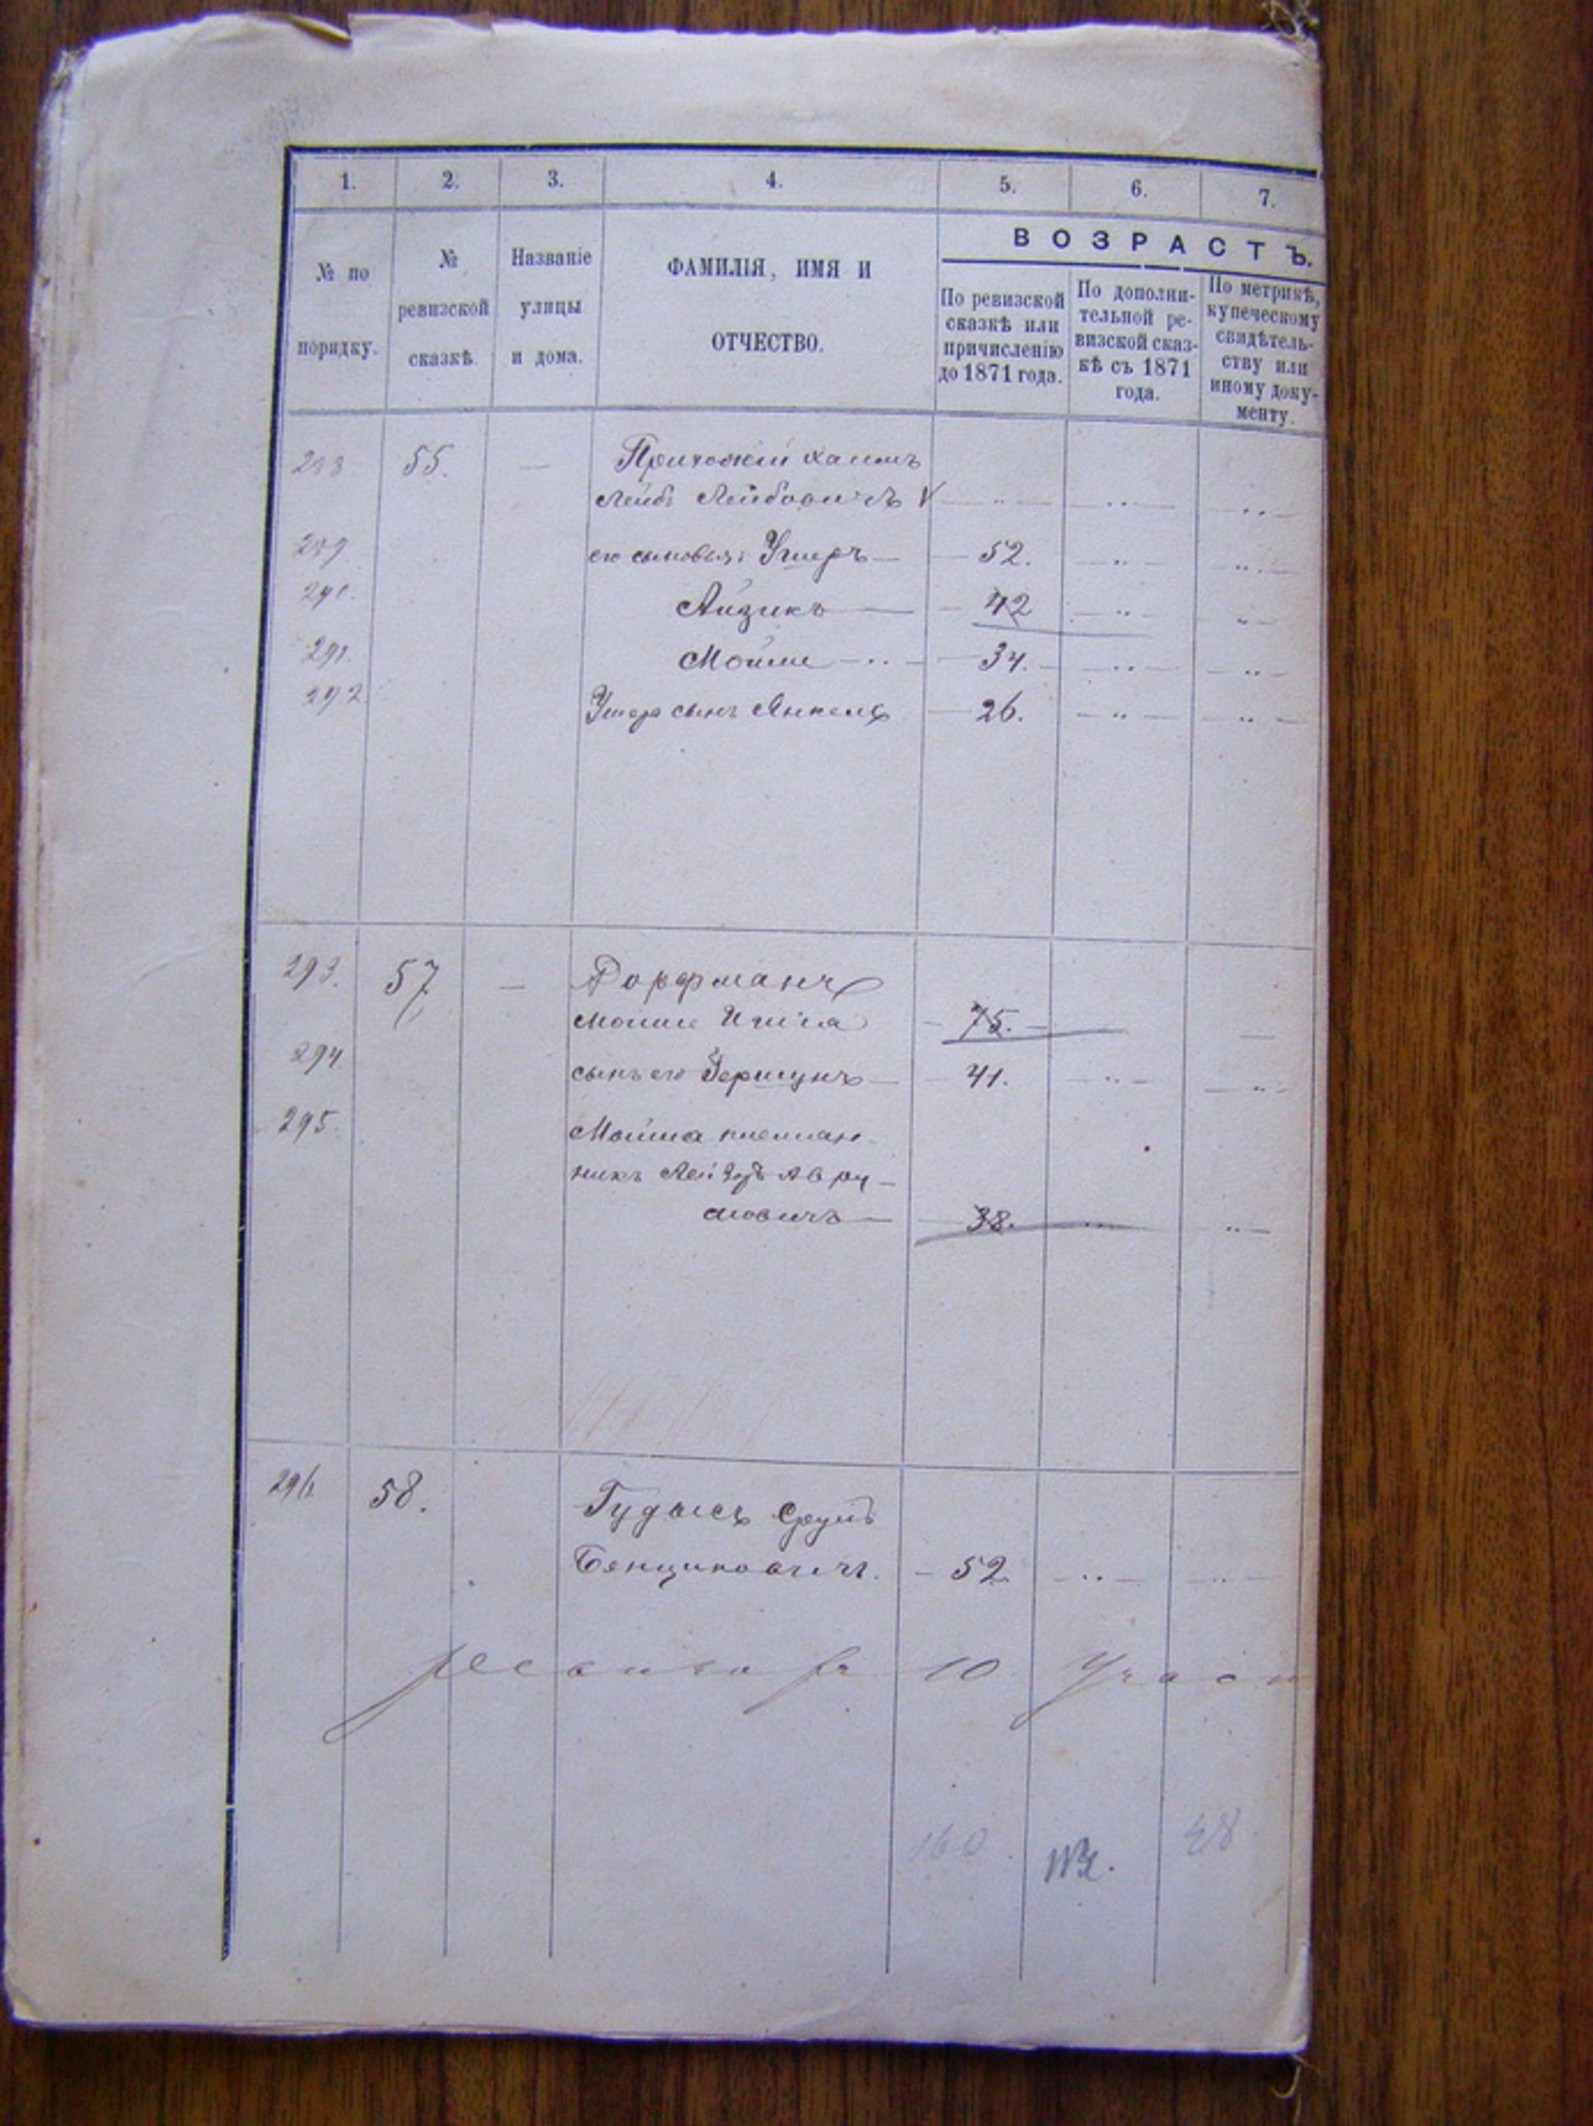 1. 2. 3. 4. 5. 6. 7.
№ по порядку.
№ ревизской сказкѣ.
Названіе улицы и дома.
ФАМИЛІЯ, ИМЯ И ОТЧЕСТВО.
ВОЗРАСТЪ.
По ревизской сказкѣ или причисленію до 1871 года.
По дополни-тельной ре-визской сказ-кѣ съ 1871 года.
По метрикѣ, купеческому свидѣтель-ству или иному доку-менту.
288 55. — Хаимъ
Лейбъ Лейбовичъ
289 его сыновья: Ушеръ — 52.
290. Айзикъ — 42
291. Мойше — 34.
292. Ушера сынъ Янкель — 26.
293. 57 — Дорфманъ
Мойше 75. —
294 сынъ его Гершунъ — 41.
295. Мойша племян-
никъ Авру-
мовичъ — 38.
296 58. Гудысъ Сруль
Бенционовичъ. — 52
10
160 48